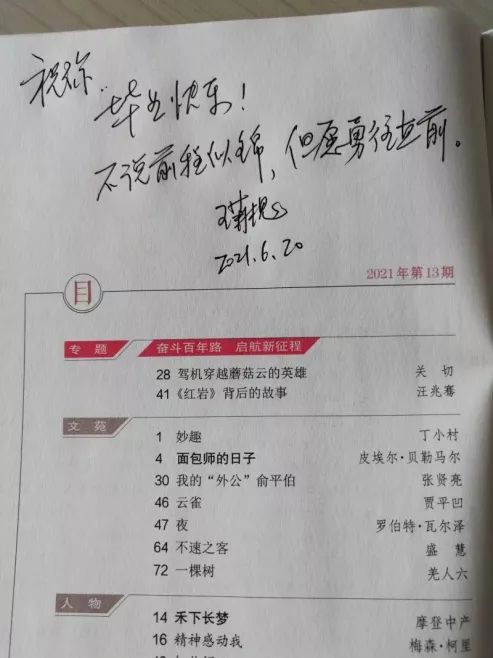 祝你：
毕业快乐！
不说前程似锦，但愿勇往直前。
2021.6.20
2021年第13期
目
专 题 奋斗百年路 启航新征程
28 驾机穿越蘑菇云的英雄 关 切
41《红岩》背后的故事 汪兆骞
文 苑
1 妙趣 丁小村
4 面包师的日子 皮埃尔·贝勒马尔
30 我的“外公”俞平伯 张贤亮
46 云雀 贾平凹
47 夜 罗伯特·瓦尔泽
64 不速之客 盛 慧
72 一棵树 羌人六
人 物
14 禾下长梦 摩登中产
16 精神感动我 梅森·柯里